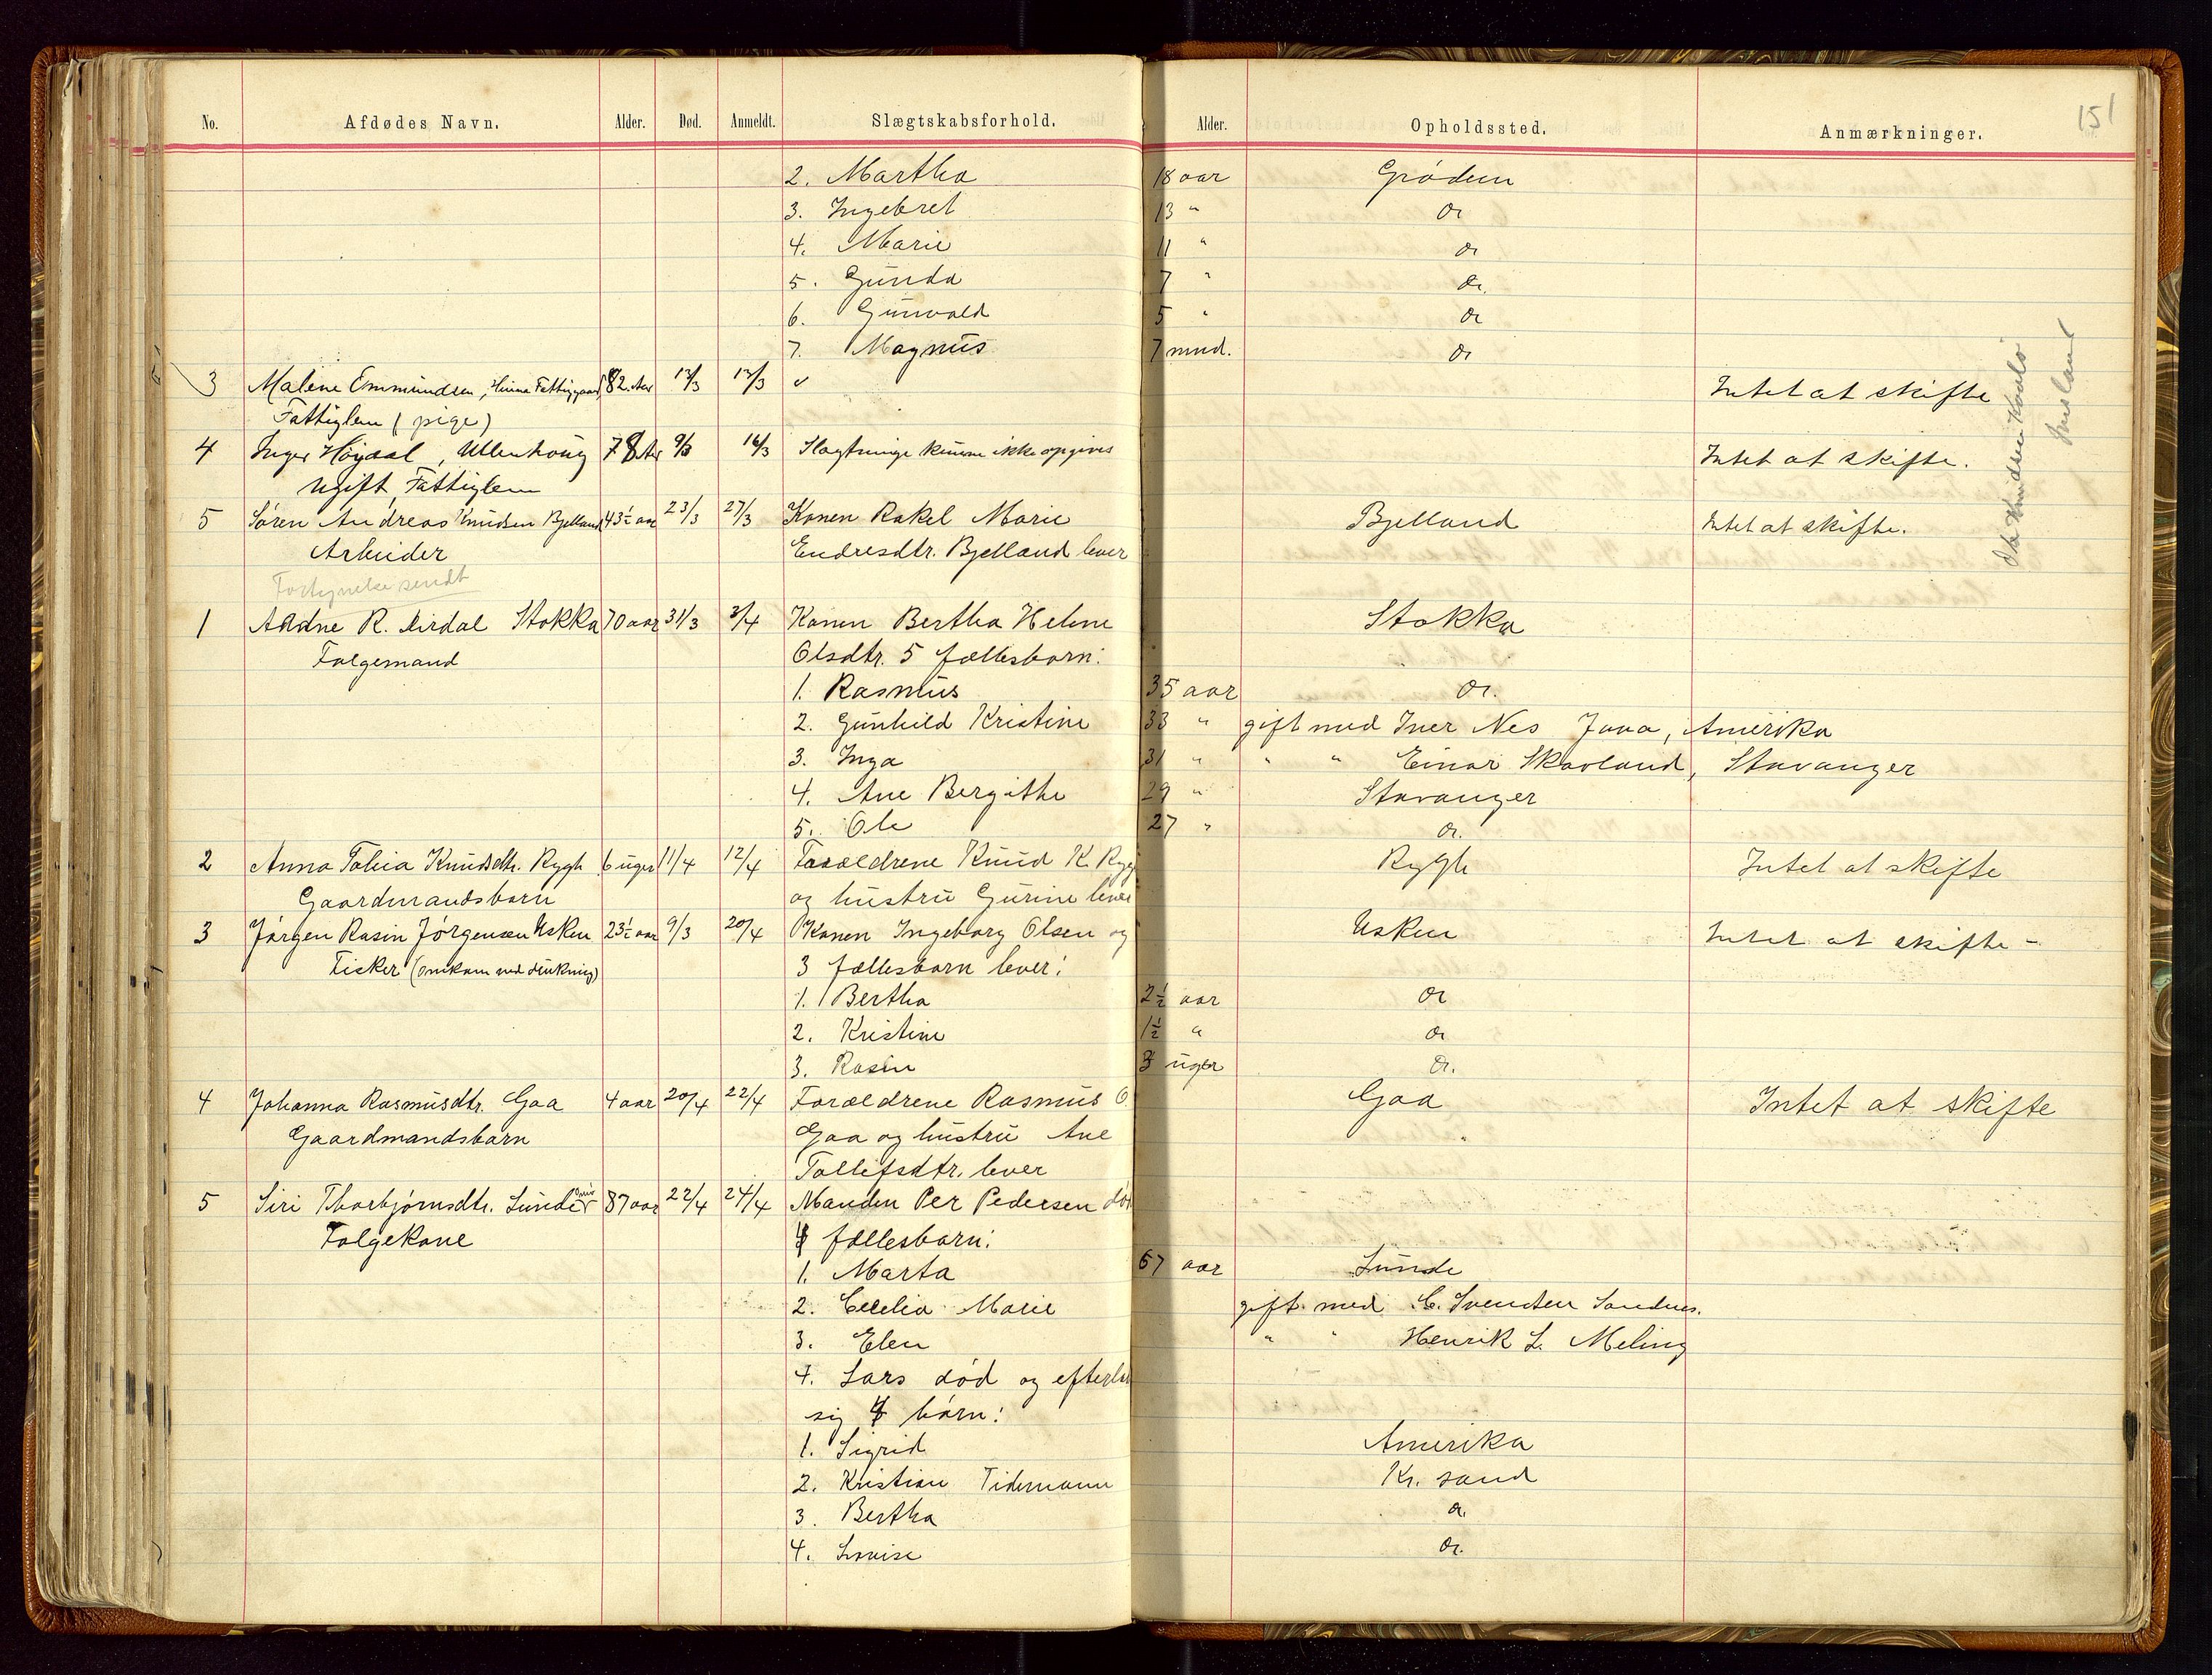 151
No. Afdødes Navn. Alder. Død. Anmeldt. Slægtskabsforhold. Alder. Opholdssted. Anmærkninger.
2. Martha 18 aar Grødem
3. Ingebret 13 " do
4. Marie 11 " do
5. Gunda 7 " do.
6. Gunvald 5 " do
7. Magnus 7 mnd. do
3 Malene Emmundsen, Hinna Fattiggaard 82 Aar 13/3 13/3 Intet at skifte
Fattiglem (pige)
4 Inger Høydal, Ullenhoug 78 Aar 9/3 16/3 Slægtninge kunne ikke opgives Intet at skifte.
ugift Fattiglem
5 Søren Andreas Knudsen Bjelland 43½ aar 23/3 27/3 Konen Rakel Marie Bjelland Intet at skifte.
Arbeider Endresdtr. Bjelland lever
sendt
1 Aadne R. Stokka 70 aar 31/3 3/4 Konen Bertha Helene Stokka
Folgemand Olsdtr. 5 fællesbørn:
1. Rasmus 35 aar do.
2. Gunhild Kristine 33 " gift med Iver Nes Java, Amerika
3. Inga 31 " " " Einar Skavland, Stavanger
4. Ane Bergithe 29 " Stavanger
5. Ole 27 " do.
2 Anna Knudsdtr. Rygh 6 uger 11/4 12/4 Forældrene Knud K. Rygh Intet at skifte
Gaardmandsbarn og hustru Gurine lever
3 Jørgen Rasin Jørgensen Usken 23½ aar 9/3 20/4 Konen Ingeborg Olsen og Usken Intet at skifte -
Fisker (omkom ved drukning) 3 fællesbørn lever:
1. Bertha 2½ aar do
2. Kristine 1½ " do
3. Rasin 3 uger do.
4 Johanna Rasmusdtr. Gaa 4 aar 20/4 22/4 Forældrene Rasmus O. Gaa Intet at skifte
Gaardmandsbarn Gaa og hustru Ane "
Tollefsdtr. lever
5 Siri Thorbjørnsdtr. Lunde 87 aar 22/4 24/4 Manden Per Pedersen død
Folgekone 4 fællesbørn:
1. Marta 67 aar Lunde
2. Cecelia Marie gift med C. Svendsen Sandnes.
3. Elen " " Henrik L. Meling
4. Lars død og efterlod
sig 4 børn:
1. Sigrid Amerika
2. Kristian Tidemann Kr. sand
3. Bertha do.
4. Lovise do.